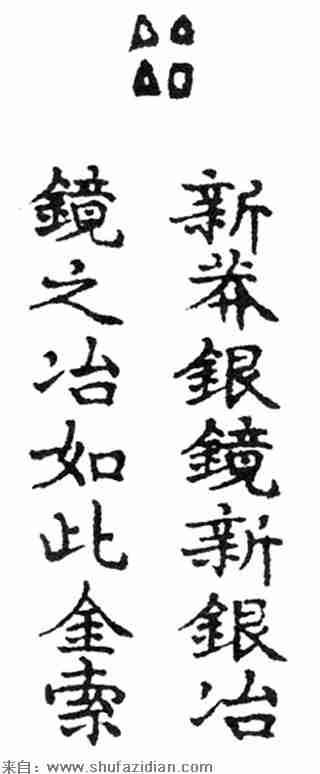 新莽銀鏡新銀冶
鏡之冶如此金索
来自：www.shufazidian.com/